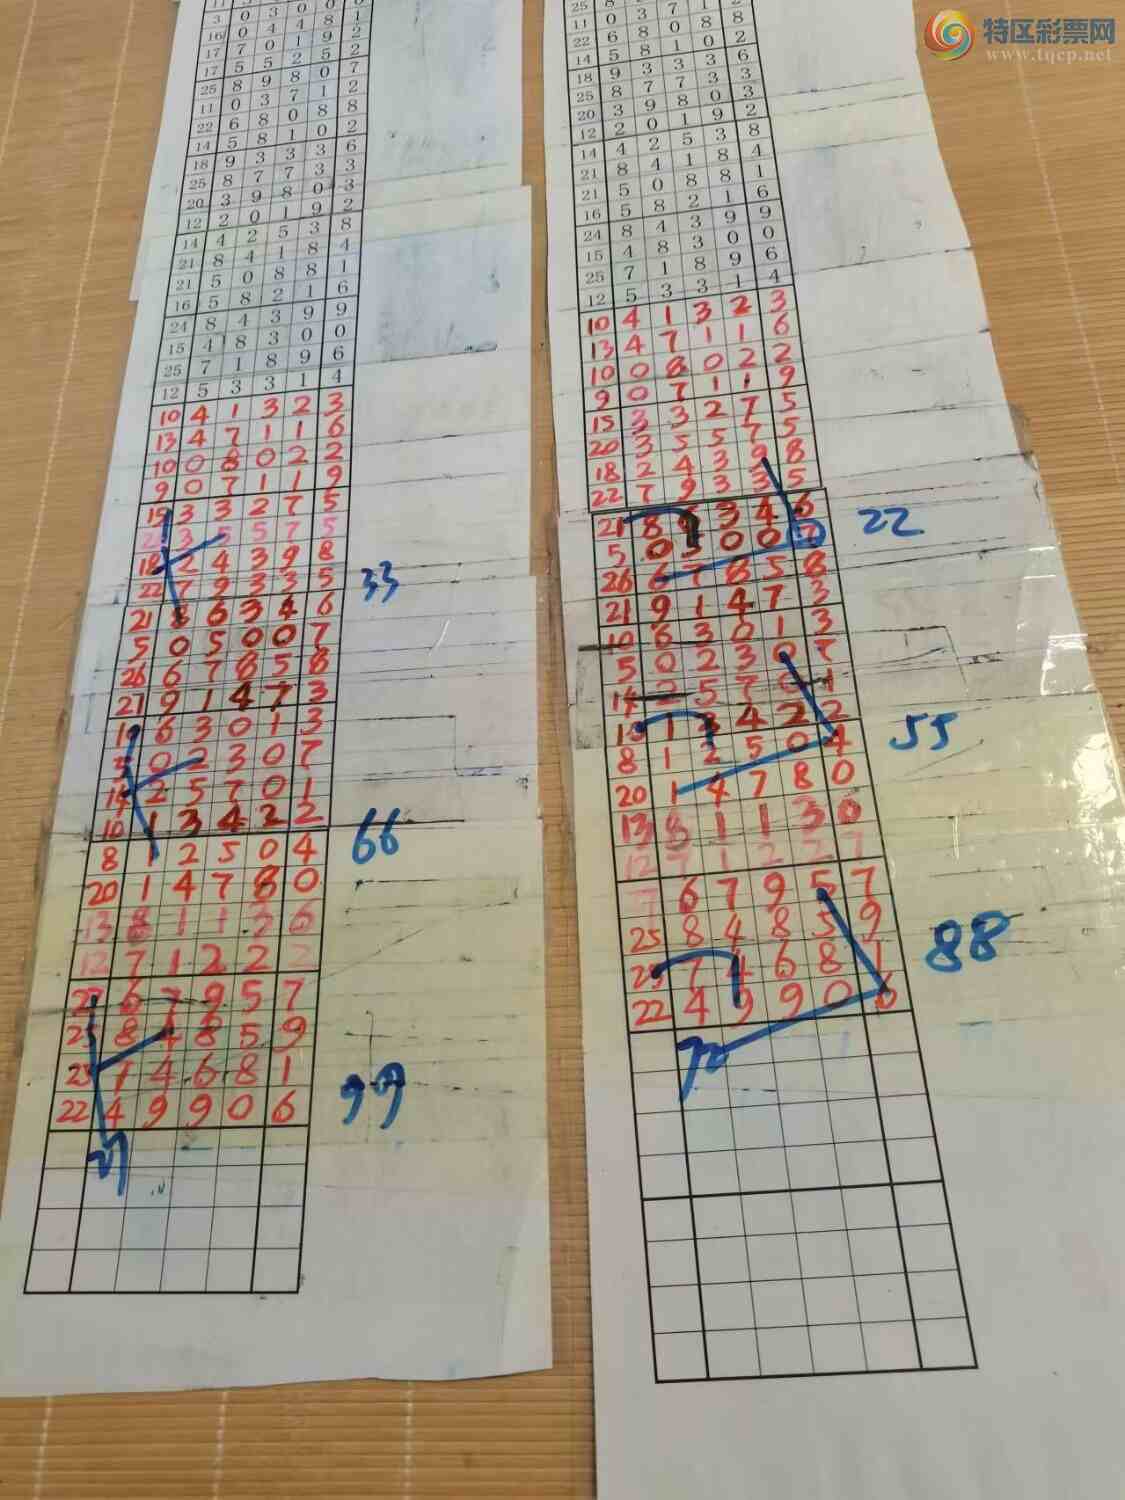 特区彩票网
www.tqcp.net
16 0 4 4 8 1
17 7 0 1 9 2
17 5 5 2 5 2
25 8 9 8 0 7
11 0 3 7 1 2
22 6 8 0 8 8
14 5 8 1 0 2
18 9 3 3 3 6
25 8 7 7 3 3
20 3 9 8 0 3
12 2 0 1 9 2
14 4 2 5 3 8
21 8 4 1 8 4
21 5 0 8 8 1
16 5 8 2 1 6
24 8 4 3 9 9
15 4 8 3 0 0
25 7 1 8 9 6
12 5 3 3 1 4
10 4 1 3 2 3
13 4 7 1 1 6
10 0 8 0 2 2
9 0 7 1 1 9
15 3 3 2 7 5
3 5 5 7 5
18 2 4 3 9 8
22 7 9 3 3 5
33
21 8 6 3 4 6
5 0 5 0 0 7
26 6 7 8 5 8
21 9 1 4 7 3
10 6 3 0 1 3
5 0 2 3 0 7
14 2 5 7 0 1
10 1 3 4 2 2
66
8 1 2 5 0 4
20 1 4 7 8 0
13 8 1 1 3 6
12 7 1 2 2 2
27 6 7 9 5 7
25 8 4 8 5 9
23 7 4 6 8 1
22 4 9 9 0 6
99
27
11 0 3 7 1 2
22 6 8 0 8 8
14 5 8 1 0 2
18 9 3 3 3 6
25 8 7 7 3 3
20 3 9 8 0 3
12 2 0 1 9 2
14 4 2 5 3 8
21 8 4 1 8 4
21 5 0 8 8 1
16 5 8 2 1 6
24 8 4 3 9 9
15 4 8 3 0 0
25 7 1 8 9 6
12 5 3 3 1 4
10 4 1 3 2 3
13 4 7 1 1 6
10 0 8 0 2 2
9 0 7 1 1 9
15 3 3 2 7 5
20 3 5 5 7 5
18 2 4 3 9 8
22 7 9 3 3 5
21 8 6 3 4 6
22
5 0 5 0 0 7
26 6 7 8 5 8
21 9 1 4 7 3
10 6 3 0 1 3
5 0 2 3 0 7
14 2 5 7 0 1
10 1 3 4 2 2
55
8 1 2 5 0 4
20 1 4 7 8 0
13 8 1 1 3 0
12 7 1 2 2 7
6 7 9 5 7
25 8 4 8 5 9
88
23 7 4 6 8 1
22 4 9 9 0 6
72